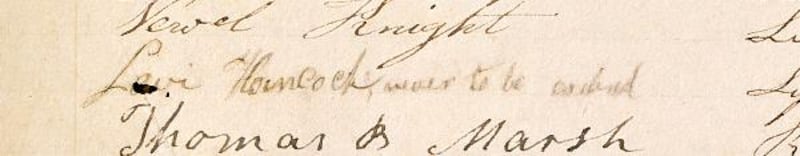 Newel Knight
Levi Hancock, never to be
Thomas B Marsh